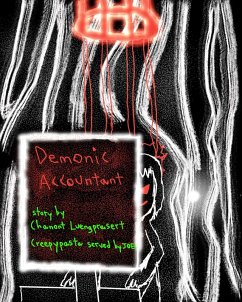 Demonic
Accountant
story by
Chanont Luengprasert
Creepypasta served by JOE